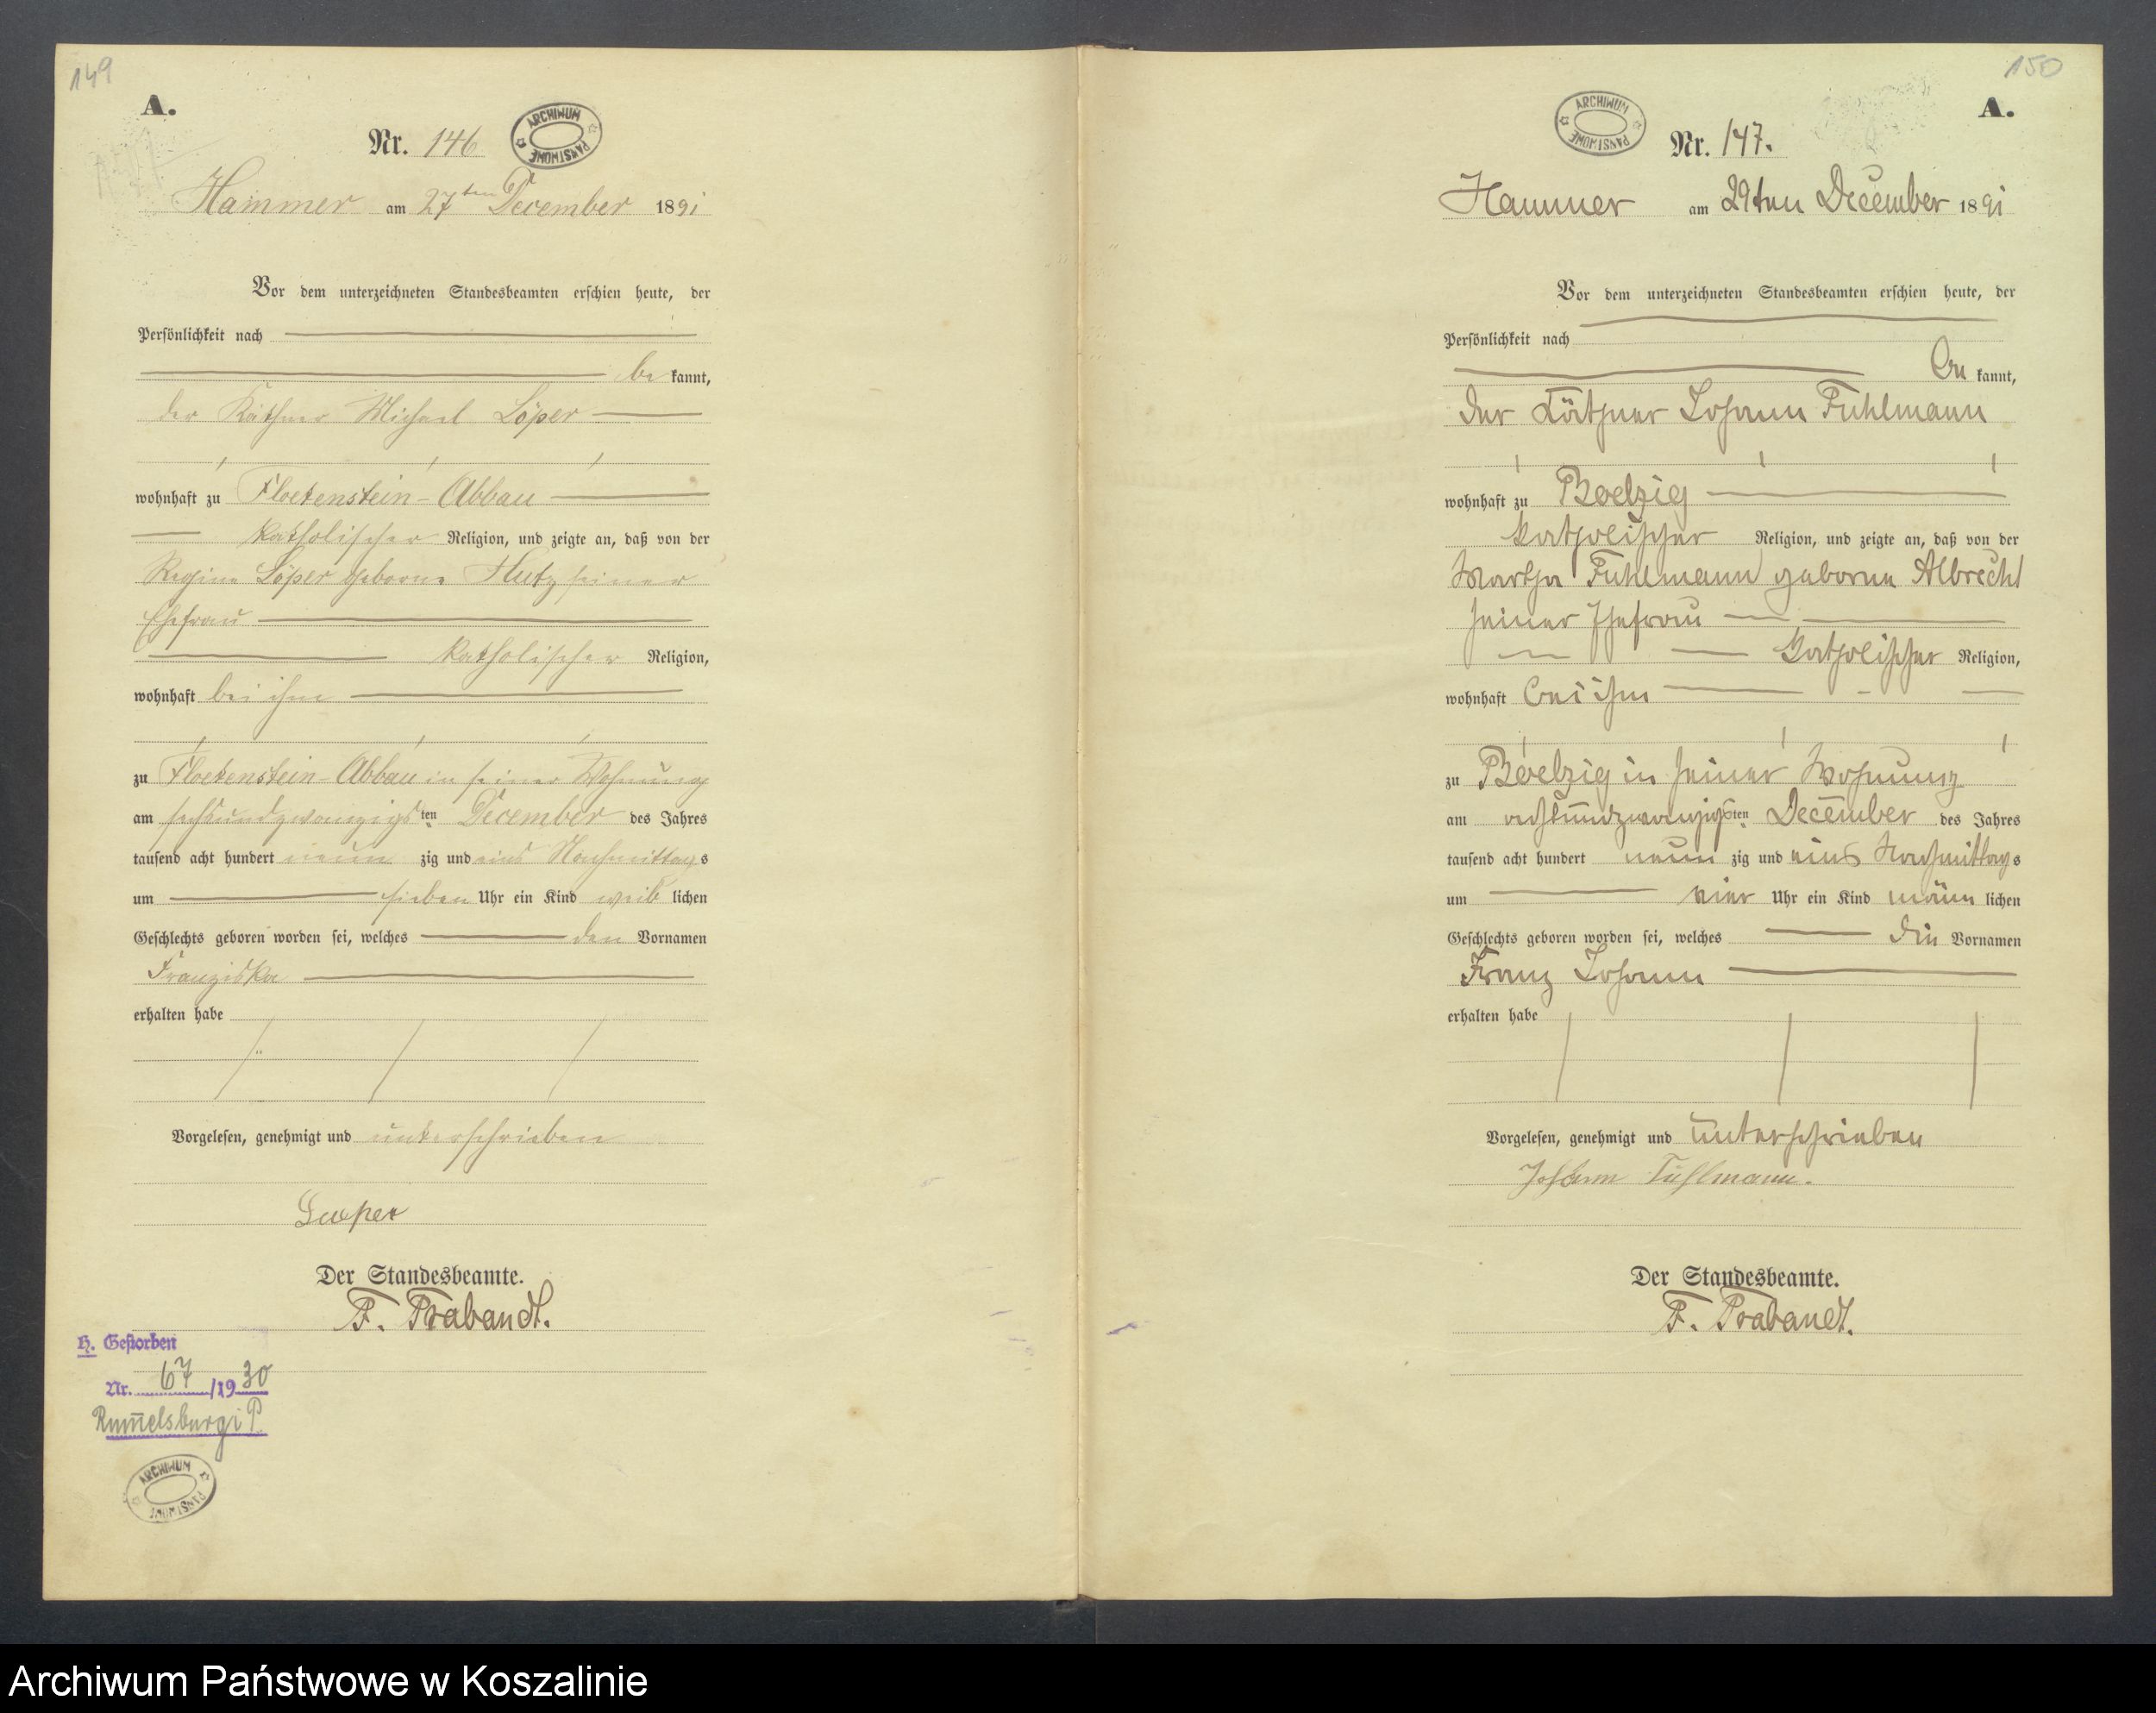 149
A.
Nr. 146
ARCHIWUM PAŃSTWOWE
Hammer am 27ten December 1891
Vor dem unterzeichneten Standesbeamten erschien heute, der
Persönlichkeit nach
be kannt,
der Käthner Michael Löper
wohnhaft zu Flötenstein-Abbau
katholischer Religion, und zeigte an, daß von der
Regine Löper geborne Hutz seiner
Ehefrau
katholischer Religion,
wohnhaft bei ihm
zu Flötenstein-Abbau in seiner Wohnung
am sechsundzwanzigsten December des Jahres
tausend acht hundert neun zig und eins Nachmittags
um sieben Uhr ein Kind weib lichen
Geschlechts geboren worden sei, welches den Vornamen
Franziska
erhalten habe
Vorgelesen, genehmigt und unterschrieben
Loeper
Der Standesbeamte.
F. Brabandt.
H. Gestorben
Nr. 67/1930
Rummelsburg i P.
ARCHIWUM PAŃSTWOWE
150
A.
ARCHIWUM PAŃSTWOWE
Nr. 147.
Hammer am 29ten December 1891
Vor dem unterzeichneten Standesbeamten erschien heute, der
Persönlichkeit nach
be kannt,
der Käthner Johann Fuhlmann
wohnhaft zu Poelzig
katholischer Religion, und zeigte an, daß von der
Martha Fuhlmann geborne Albrecht
seiner Ehefrau
katholischer Religion,
wohnhaft bei ihm
zu Poelzig in seiner Wohnung
am achtundzwanzigsten December des Jahres
tausend acht hundert neun zig und eins Nachmittags
um vier Uhr ein Kind männ lichen
Geschlechts geboren worden sei, welches die Vornamen
Franz Johann
erhalten habe
Vorgelesen, genehmigt und unterschrieben
Johann Fuhlmann.
Der Standesbeamte.
F. Brabandt.
Archiwum Państwowe w Koszalinie